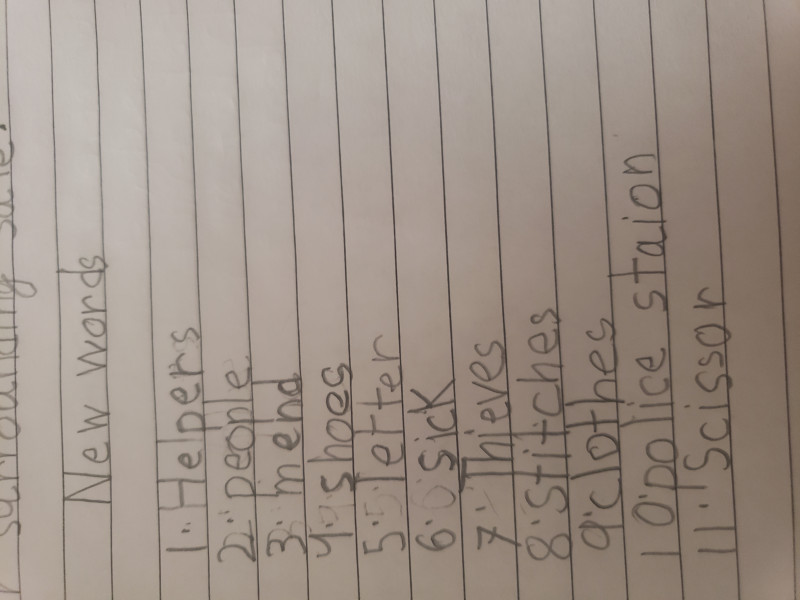 surrounding safe.
New words
1. Helpers
2. people
3. mend
4. shoes
5. letter
6. sick
7. Thieves
8. stitches
9. clothes
10. police staion
11. Scissor